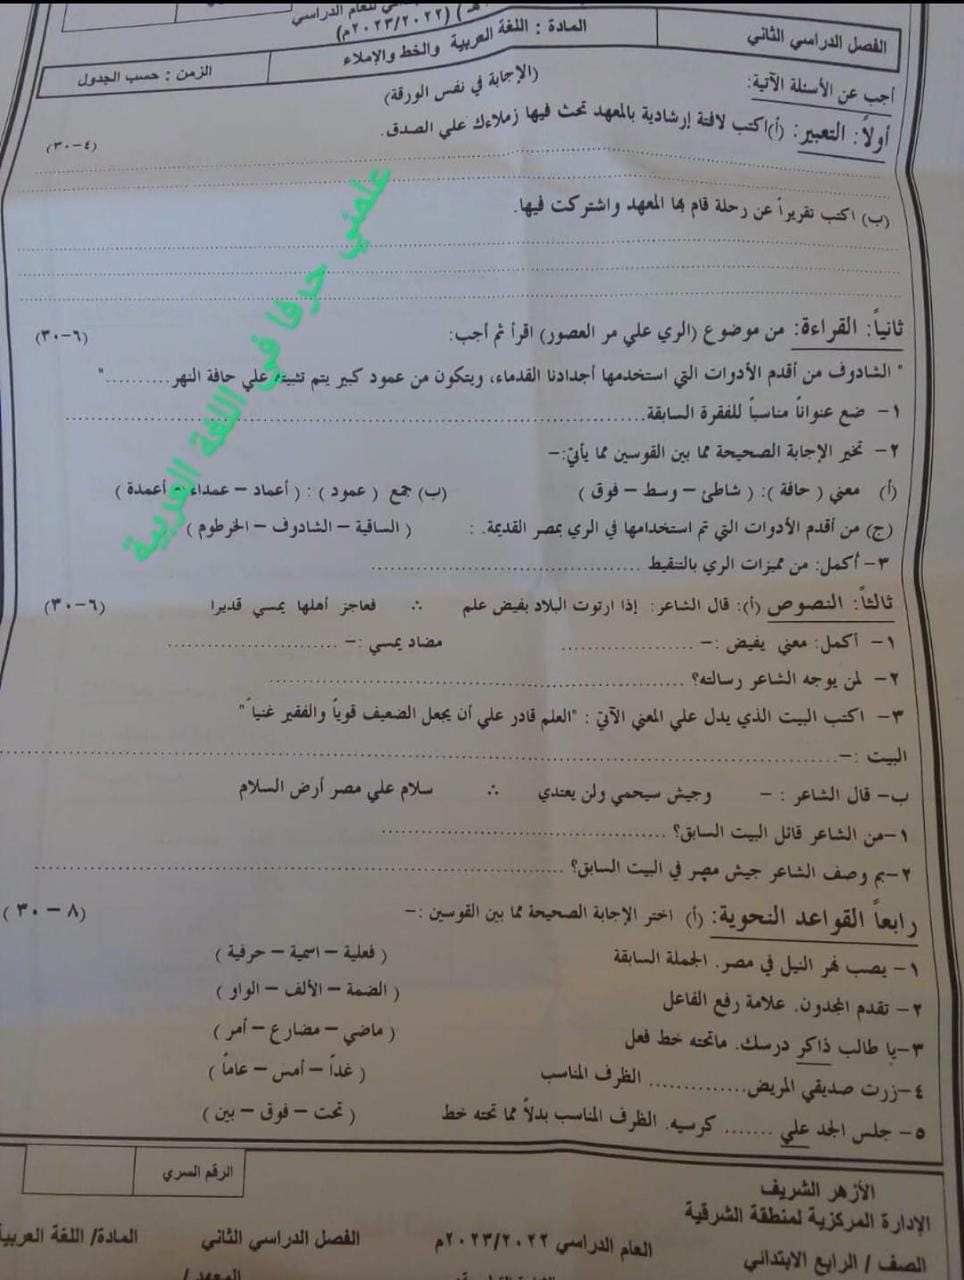 للعام الدراسي (٢٠٢٣/٢٠٢٢م)
الفصل الدراسي الثاني
المادة : اللغة العربية والخط والإملاء
الزمن : حسب الجدول
أجب عن الأسئلة الآتية:
(الإجابة في نفس الورقة)
أولاً: التعبير: (أ)اكتب لافتة إرشادية بالمعهد تحث فيها زملاءك علي الصدق.
(٤-٣٠)
(ب) اكتب تقريراً عن رحلة قام بها المعهد واشتركت فيها.
ثانياً: القراءة: من موضوع (الري علي مر العصور) اقرأ ثم أجب:
(٦-٣٠)
" الشادوف من أقدم الأدوات التي استخدمها أجدادنا القدماء، ويتكون من عمود كبير يتم تثبيته علي حافة النهر.........."
١- ضع عنواناً مناسباً للفقرة السابقة.....................
٢- تخير الإجابة الصحيحة مما بين القوسين مما يأتي:-
(أ) معني ( حافة ): ( شاطئ – وسط – فوق ) (ب) جمع ( عمود ) : ( أعماد – عمداء – أعمدة )
(ج) من أقدم الأدوات التي تم استخدامها في الري بمصر القديمة. : ( الساقية – الشادوف – الخرطوم )
٣- أكمل: من مميزات الري بالتنقيط .....................
ثالثاً: النصوص (أ): قال الشاعر: إذا ارتوت البلاد بفيض علم ∴ فعاجز أهلها يمسي قديرا (٦-٣٠)
١- أكمل: معني يفيض :- ..................... مضاد يمسي :- .....................
٢- لمن يوجه الشاعر رسالته؟ .....................
٣- اكتب البيت الذي يدل علي المعني الآتي : "العلم قادر علي أن يجعل الضعيف قوياً والفقير غنياً "
البيت :-.....................
ب- قال الشاعر : - وجيش سيحمي ولن يعتدي ∴ سلام علي مصر أرض السلام
١-من الشاعر قائل البيت السابق؟ .....................
٢-بم وصف الشاعر جيش مصر في البيت السابق؟ .....................
رابعاً القواعد النحوية: (أ) اختر الإجابة الصحيحة مما بين القوسين :-
(٨ - ٣٠)
١- يصب نهر النيل في مصر. الجملة السابقة ( فعلية – اسمية – حرفية )
٢- تقدم المجدون. علامة رفع الفاعل ( الضمة – الألف – الواو )
٣-يا طالب ذاكر درسك. ماتحته خط فعل ( ماضي – مضارع – أمر )
٤-زرت صديقي المريض............. الظرف المناسب ( غداً – أمس – عاماً )
٥- جلس الجد علي ....... كرسيه. الظرف المناسب بدلاً مما تحته خط ( تحت – فوق – بين )
علمني حرفا في اللغة العربية
الأزهر الشريف
الرقم السري
الإدارة المركزية لمنطقة الشرقية
العام الدراسي ٢٠٢٣/٢٠٢٢م
الفصل الدراسي الثاني
المادة/ اللغة العربية
الصف / الرابع الابتدائي
المعهد /